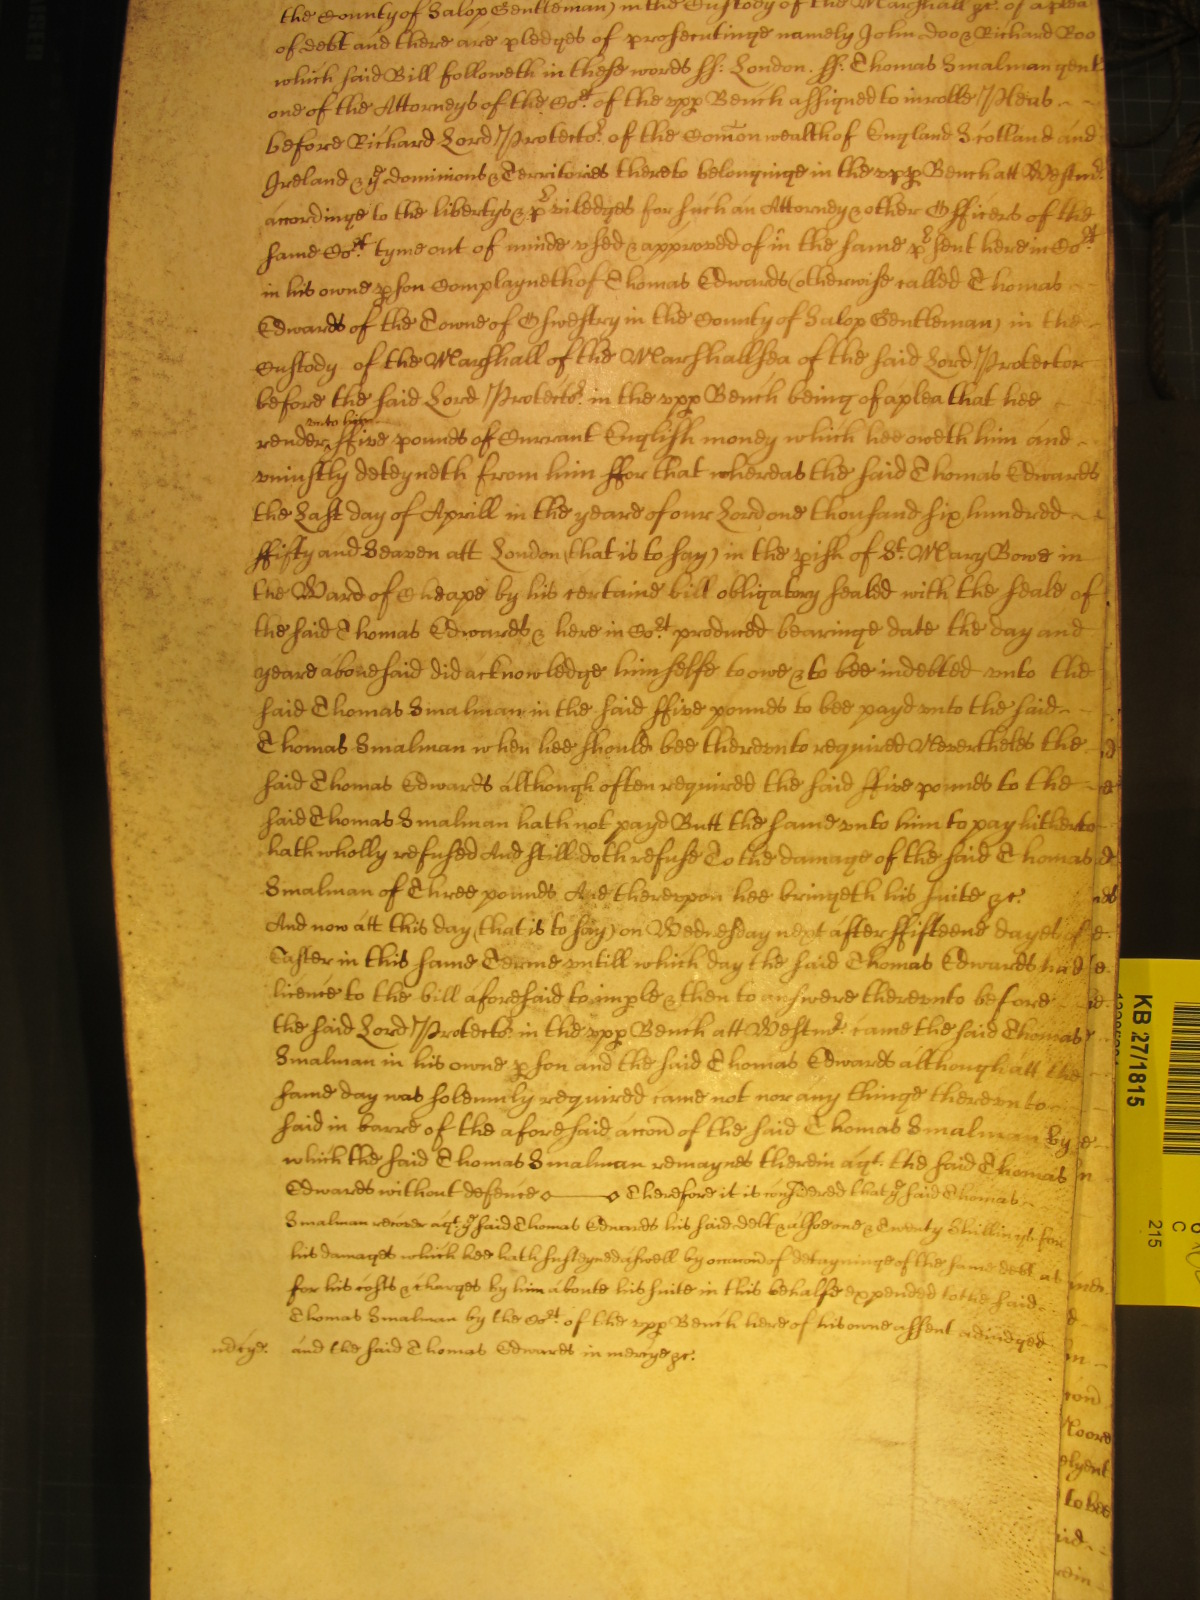 the County of Salop Gentleman) in the Custody of the Marshall &c. of a plea
of debt and there are pledges of prosecutinge namely John Doo & Richard Roo
which said Bill followeth in these words ss: London. ss: Thomas Smalman gent
one of the Attorneys of the Cort of the upp Bench assigned to inrolle Pleas
before Richard Lord Protector of the Comon wealth of England Scotland and
Ireland & ye dominions & Territories thereto belonginge in the upp Bench att Westmr
accordinge to the libertys & priviledges for such an Attorney & other Officers of the
same Cort tyme out of minde used & approved of in the same prsent here in Cort
in his owne pson Complayneth of Thomas Edwards (otherwise called Thomas
Edwards of the Towne of Oswestry in the County of Salop Gentleman) in the
Custody of the Marshall of the Marshallsea of the said Lord Protector
before the said Lord Protector in the upp Bench being of a plea that hee
render unto him ffive pounds of Currant English money which hee oweth him and
uniustly deteyneth from him ffor that whereas the said Thomas Edwards
the Last day of Aprill in the yeare of our Lord one thousand six hundred
ffifty and Seaven att London (that is to say) in the pish of St. Mary Bowe in
the Ward of Cheape by his certaine bill obligatory sealed with the seale of
the said Thomas Edwards & here in Cort produced bearinge date the day and
yeare abovesaid did acknowledge himselfe to owe & to bee indebted unto the
said Thomas Smalman in the said ffive pounds to bee payd unto the said
Thomas Smalman when hee should bee thereunto required Neverthelés the
said Thomas Edwards although often required the said ffive pounds to the
said Thomas Smalman hath not payd Butt the same unto him to pay hitherto
hath wholly refused And still doth refuse To the damage of the said Thomas
Smalman of Three pounds And thereupon hee bringeth his suite &c.
And now att this day (that is to say) on Wednesday next after ffifteene dayes of
Easter in this same Terme untill which day the said Thomas Edwards had
licence to the bill aforesaid to imple & then to answere thereunto before
the said Lord Protector in the upp Bench att Westmr came the said Thomas
Smalman in his owne pson and the said Thomas Edwards although att the
same day was solemnly required came not nor any thinge thereunto
said in barre of the aforesaid accon of the said Thomas Smalman by
which the said Thomas Smalman remaynes therein agt. the said Thomas
Edwards without defence Therefore it is considered that ye said Thomas
Smalman recover agt. ye said Thomas Edwards his said debt & alsoe one & Twenty Shillings for
his damages which hee hath susteyned aswell by occacon of detayninge of the same debt as
for his costs & charges by him aboute his suite in this behalfe expended to the said
Thomas Smalman by the Cort of the upp Bench here of his owne assent adiudged
and the said Thomas Edwards in mercye &c.
KB 27/1815
215